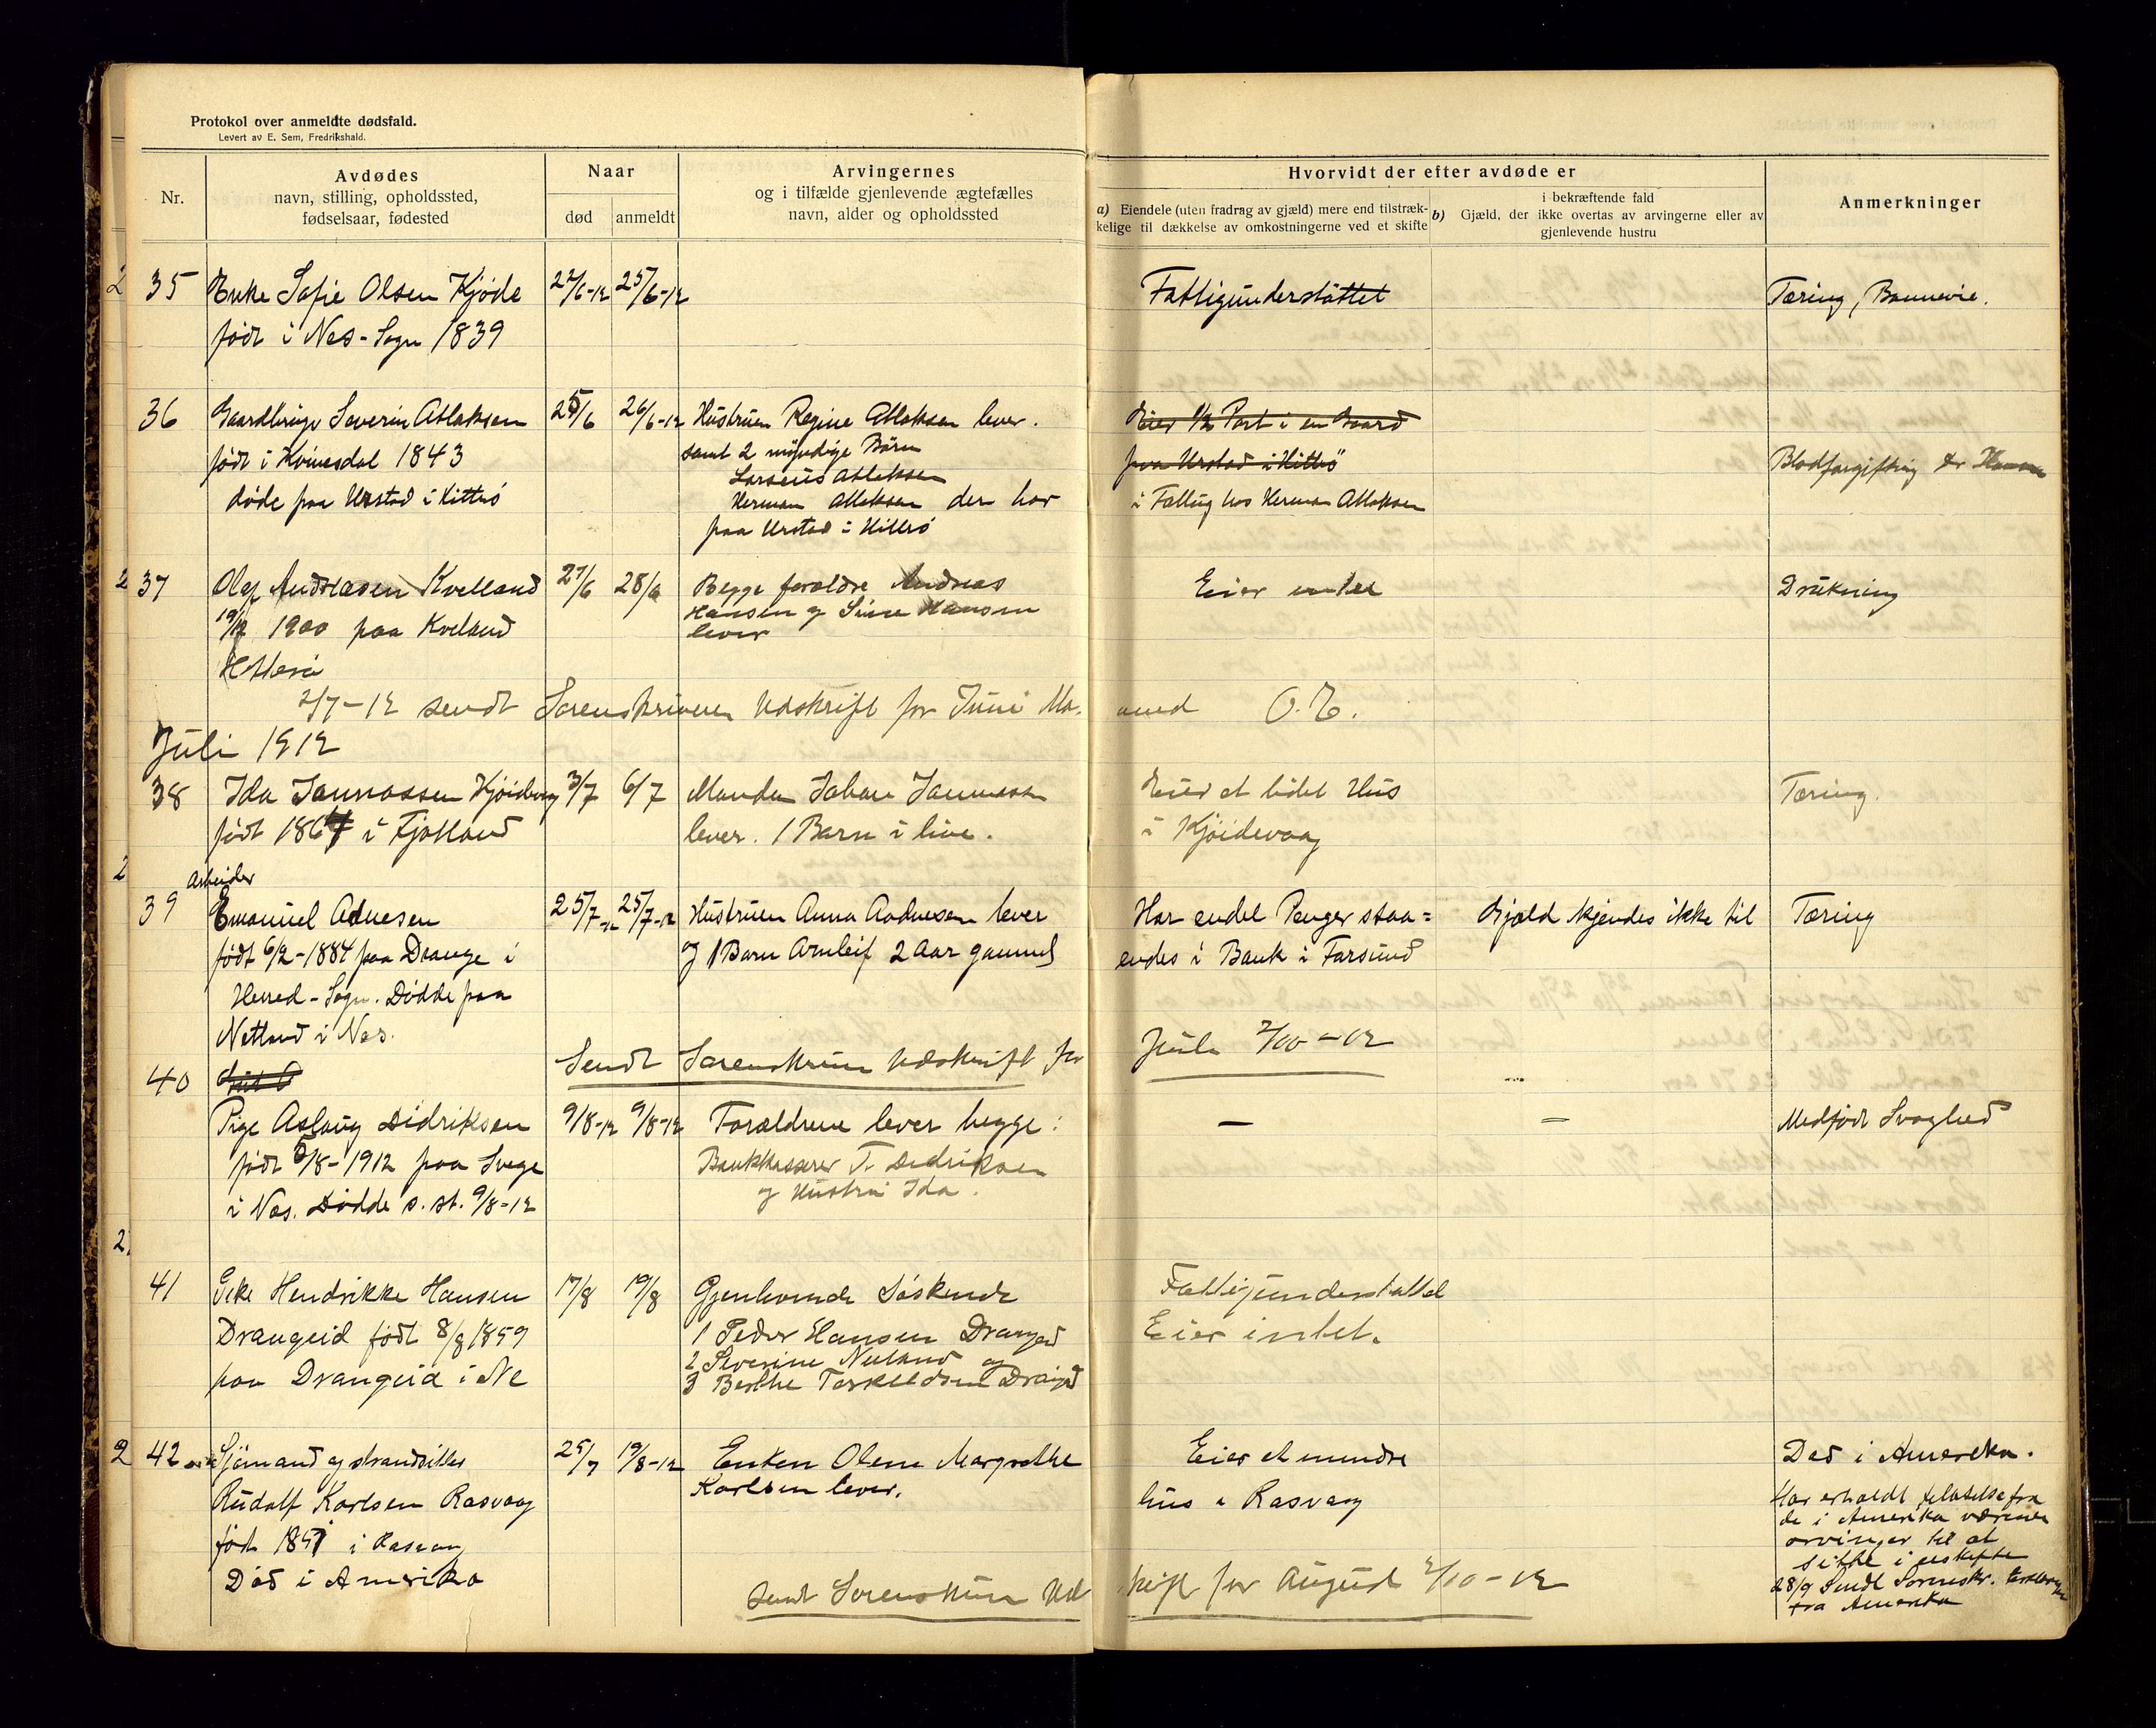 Protokol over anmeldte dødsfald.
Levert av E. Sem, Fredrikshald.
Nr.
Avdødes
navn, stilling, opholdssted,
fødselsaar, fødested
Naar
død
anmeldt
Arvingernes
og i tilfælde gjenlevende ægtefælles
navn, alder og opholdssted
Hvorvidt der efter avdøde er
a) Eiendele (uten fradrag av gjæld) mere end tilstræk-
kelige til dækkelse av omkostningerne ved et skifte
i bekræftende fald
b) Gjæld, der ikke overtas av arvingerne eller av
gjenlevende hustru
Anmerkninger
35 Enke Sofie Olsen Kjøde 22/6-12 25/6-12 Fattigunderstøttet Tæring,
født i Nes-Sogn 1839
36 Gaardbruger Severin Atlaksen 25/6 26/6-12 Hustruen Regine Atlaksen lever. Eier 1/2 Part i en Gaard
født i Kvinesdal 1843 samt 2 myndige Børn paa Urstad i Hitterö Blodforgiftning
døde paa Urstad i Hitterö Larseus Atlaksen i Fællig hos Herman Atlaksen
Herman Atlaksen der bor
paa Urstad i Hitterö
37 Olaf Andreasen Kvelland 27/6 28/6 Begge forældre Andreas Eier intet Drukning
19/12 1900 paa Kveland Hansen og Sine Hansen
Hitterö lever
2/7-12 sendt Sorenskriveren Udskrift for Juni Maaned O.T.
Juli 1912
38 Ida Jonnassen Kjöidevaag 3/7 6/7 Manden Johan Jonnassen Eier et lidet Hus Tæring.
født 1867 i Fjotland lever. 1 Barn i live. i Kjöidevaag
Arbeider
39 Emanuel Adnesen 25/7-12 25/7-12 Hustruen Anna Aadnesen lever Har endel Penger staa= Gjæld kjendes ikke til Tæring
født 6/2-1884 paa Drange i og 1 Barn Arnleif 2 Aar gammel endes i Bank i Farsund
Herred-Sogn. Dødde paa
Netland i Nes.
Sendt Sorenskriver Udskrift for Juli 2/10-12
40
Pige Aslaug Didriksen 9/8-12 9/8-12 Forældrene lever begge: — — Medfødt Svaghed
født 5/8-1912 paa Svege Bankkasserer T. Didriksen
i Nes. Dødde s. st. 9/8-12 og Hustru Ida.
41 Hendrikke Hansen 17/8 19/8 Gjenlevende Söskende Fattigunderstøttet
Drangeid født 8/8 1859 1 Peder Hansen Drangeid Eier intet.
paa Drangeid i Ne 2 Severine Nuland og
3 Berthe Torkildsen Drangeid
42 Sjömand og strandsitter 25/7 19/8-12 Enken Olene Margrethe Eier et mindre Död i Amerika.
Rudolf Karlsen Rasvaag Karlsen lever. hus i Rasvaag Har erholdt tiladelse fra
født 1851 i Rasvaag de i Amerika værende
Död i Amerika arvinger til at
sitte i uskifte
28/9 Sendt Sorenskr.
fra Amerika
Sendt Sorenskriver Udskrift for August 2/10-12